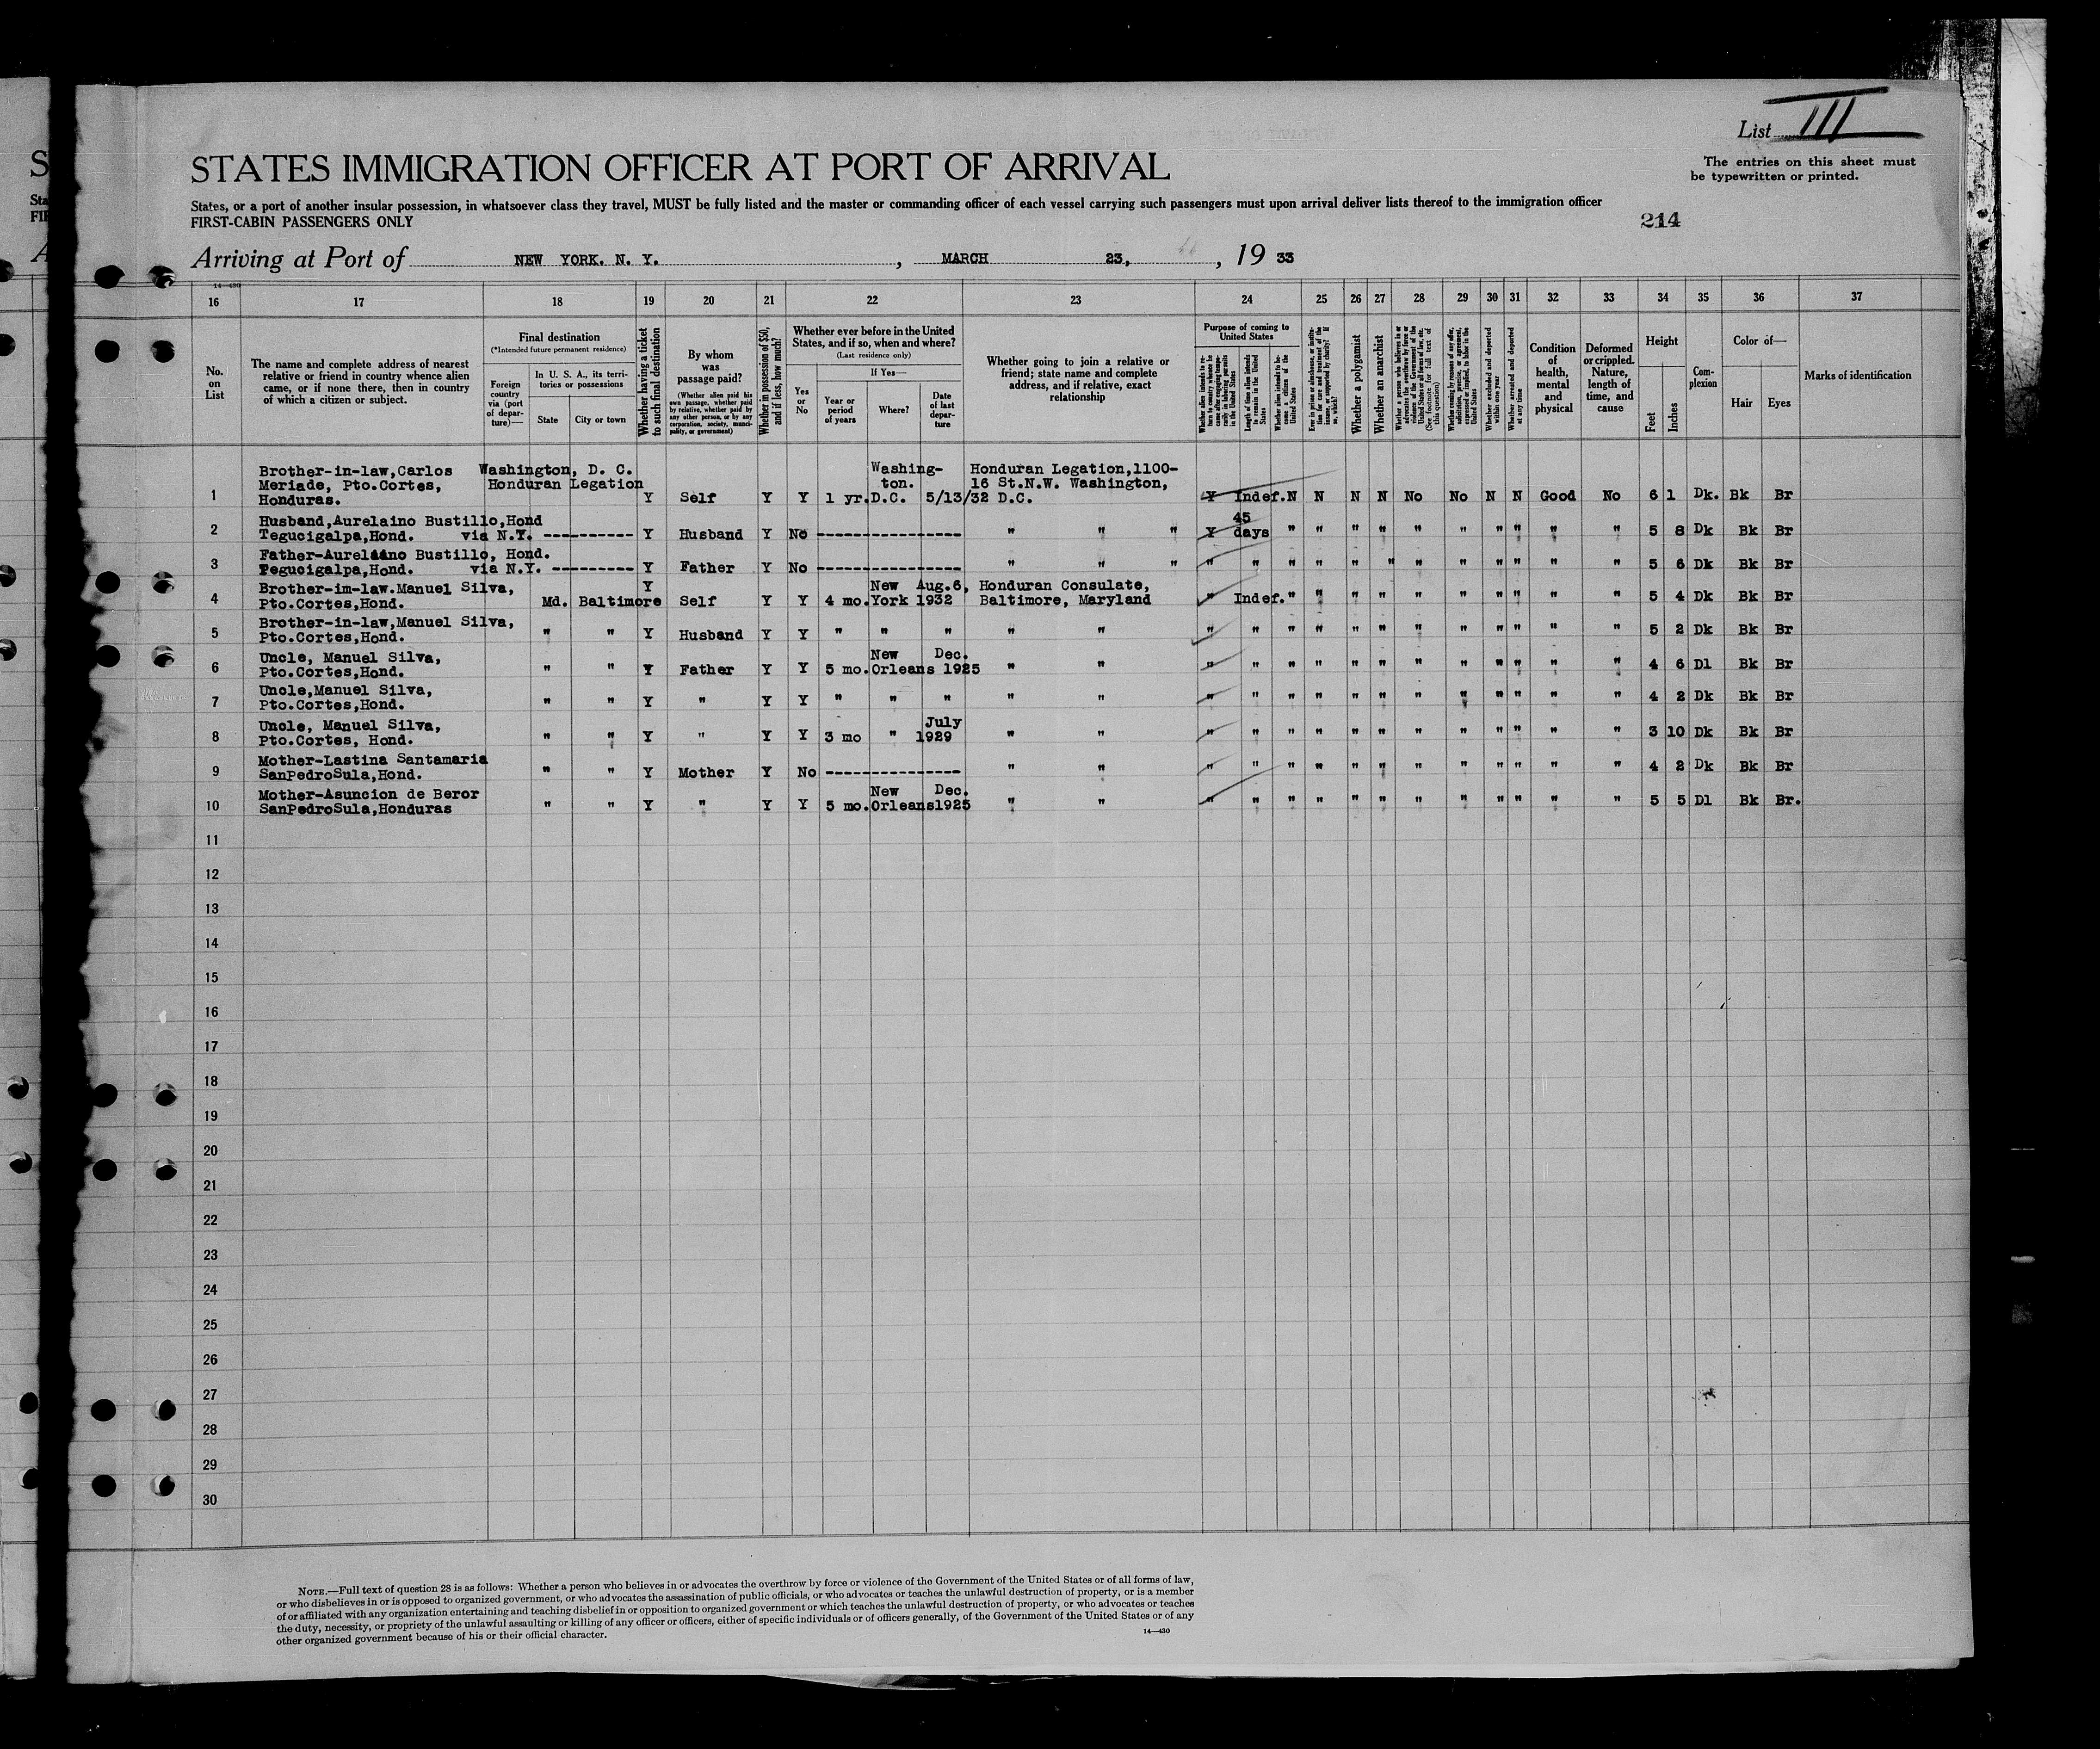 List III
The entries on this sheet must
be typewritten or printed.
STATES IMMIGRATION OFFICER AT PORT OF ARRIVAL
States, or a port of another insular possession, in whatsoever class they travel, MUST be fully listed and the master or commanding officer of each vessel carrying such passengers must upon arrival deliver lists thereof to the immigration officer
FIRST-CABIN PASSENGERS ONLY
214
Arriving at Port of NEW YORK. N. Y. , MARCH 23, , 19 33
14—430
16 17 18 19 20 21 22 23 24 25 26 27 28 29 30 31 32 33 34 35 36 37
No.
on
List
The name and complete address of nearest
relative or friend in country whence alien
came, or if none there, then in country
of which a citizen or subject.
Final destination
(*Intended future permanent residence)
Foreign
country
via (port
of depar-
ture)—
In U. S. A., its terri-
tories or possessions
State
City or town
Whether having a ticket
to such final destination
By whom
was
passage paid?
(Whether alien paid his
own passage, whether paid
by relative, whether paid by
any other person, or by any
corporation, society, munici-
pality, or government)
Whether in possession of $50,
and if less, how much?
Whether ever before in the United
States, and if so, when and where?
(Last residence only)
Yes
or
No
If Yes—
Year or
period
of years
Where?
Date
of last
depar-
ture
Whether going to join a relative or
friend; state name and complete
address, and if relative, exact
relationship
Purpose of coming to
United States
Length of time alien intends
to remain in the United
States
Whether alien intends to be-
come a citizen of the
United States
Whether a polygamist
Whether an anarchist
(See footnote for full text of
this question)
Whether excluded and deported
within one year
Whether arrested and deported
at any time
Condition
of
health,
mental
and
physical
Deformed
or crippled.
Nature,
length of
time, and
cause
Height
Feet
Inches
Com-
plexion
Color of—
Hair
Eyes
Marks of identification
Brother-in-law,Carlos Washington, D. C. Washing- Honduran Legation,1100-
Meriade, Pto.Cortes, Honduran Legation ton. 16 St.N.W. Washington,
1 Honduras. Y Self Y Y 1 yr. D.C. 5/13/32 D.C. Y Indef. N N N N No No N N Good No 6 1 Dk. Bk Br
Husband,Aurelaino Bustillo,Hond 45
2 Tegucigalpa,Hond. via N.Y. ---------- Y Husband Y No ---------------- " " " Y days " " " " " " " " " " 5 8 Dk Bk Br
Father-Aurelaino Bustillo, Hond.
3 Tegucigalpa,Hond. via N.Y. ---------- Y Father Y No ---------------- " " " " " " " " " " " " " " " 5 6 Dk Bk Br
Brother-im-law.Manuel Silva, Y New Aug.6, Honduran Consulate,
4 Pto.Cortes,Hond. Md. Baltimore Self Y Y 4 mo. York 1932 Baltimore, Maryland " Indef. " " " " " " " " " " 5 4 Dk Bk Br
Brother-in-law,Manuel Silva,
5 Pto.Cortes,Hond. " " Y Husband Y Y " " " " " " " " " " " " " " " " " 5 2 Dk Bk Br
Uncle, Manuel Silva, New Dec.
6 Pto.Cortes,Hond. " " Y Father Y Y 5 mo. Orleans 1925 " " " " " " " " " " " " " " 4 6 Dl Bk Br
Uncle,Manuel Silva,
7 Pto.Cortes,Hond. " " Y " Y Y " " " " " " " " " " " " " " " " " 4 2 Dk Bk Br
Uncle, Manuel Silva, July
8 Pto.Cortes, Hond. " " Y " Y Y 3 mo " 1929 " " " " " " " " " " " " " " 3 10 Dk Bk Br
Mother-Lastina Santamaria
9 SanPedroSula,Hond. " " Y Mother Y No ---------------- " " " " " " " " " " " " " " 4 2 Dk Bk Br
Mother-Asuncion de Beror New Dec.
10 SanPedroSula,Honduras " " Y " Y Y 5 mo. Orleans 1925 " " " " " " " " " " " " " " 5 5 Dl Bk Br.
11
12
13
14
15
16
17
18
19
20
21
22
23
24
25
26
27
28
29
30
NOTE.—Full text of question 28 is as follows: Whether a person who believes in or advocates the overthrow by force or violence of the Government of the United States or of all forms of law,
or who disbelieves in or is opposed to organized government, or who advocates the assassination of public officials, or who advocates or teaches the unlawful destruction of property, or is a member
of or affiliated with any organization entertaining and teaching disbelief in or opposition to organized government or which teaches the unlawful destruction of property, or who advocates or teaches
the duty, necessity, or propriety of the unlawful assaulting or killing of any officer or officers, either of specific individuals or of officers generally, of the Government of the United States or of any
other organized government because of his or their official character.
14—430